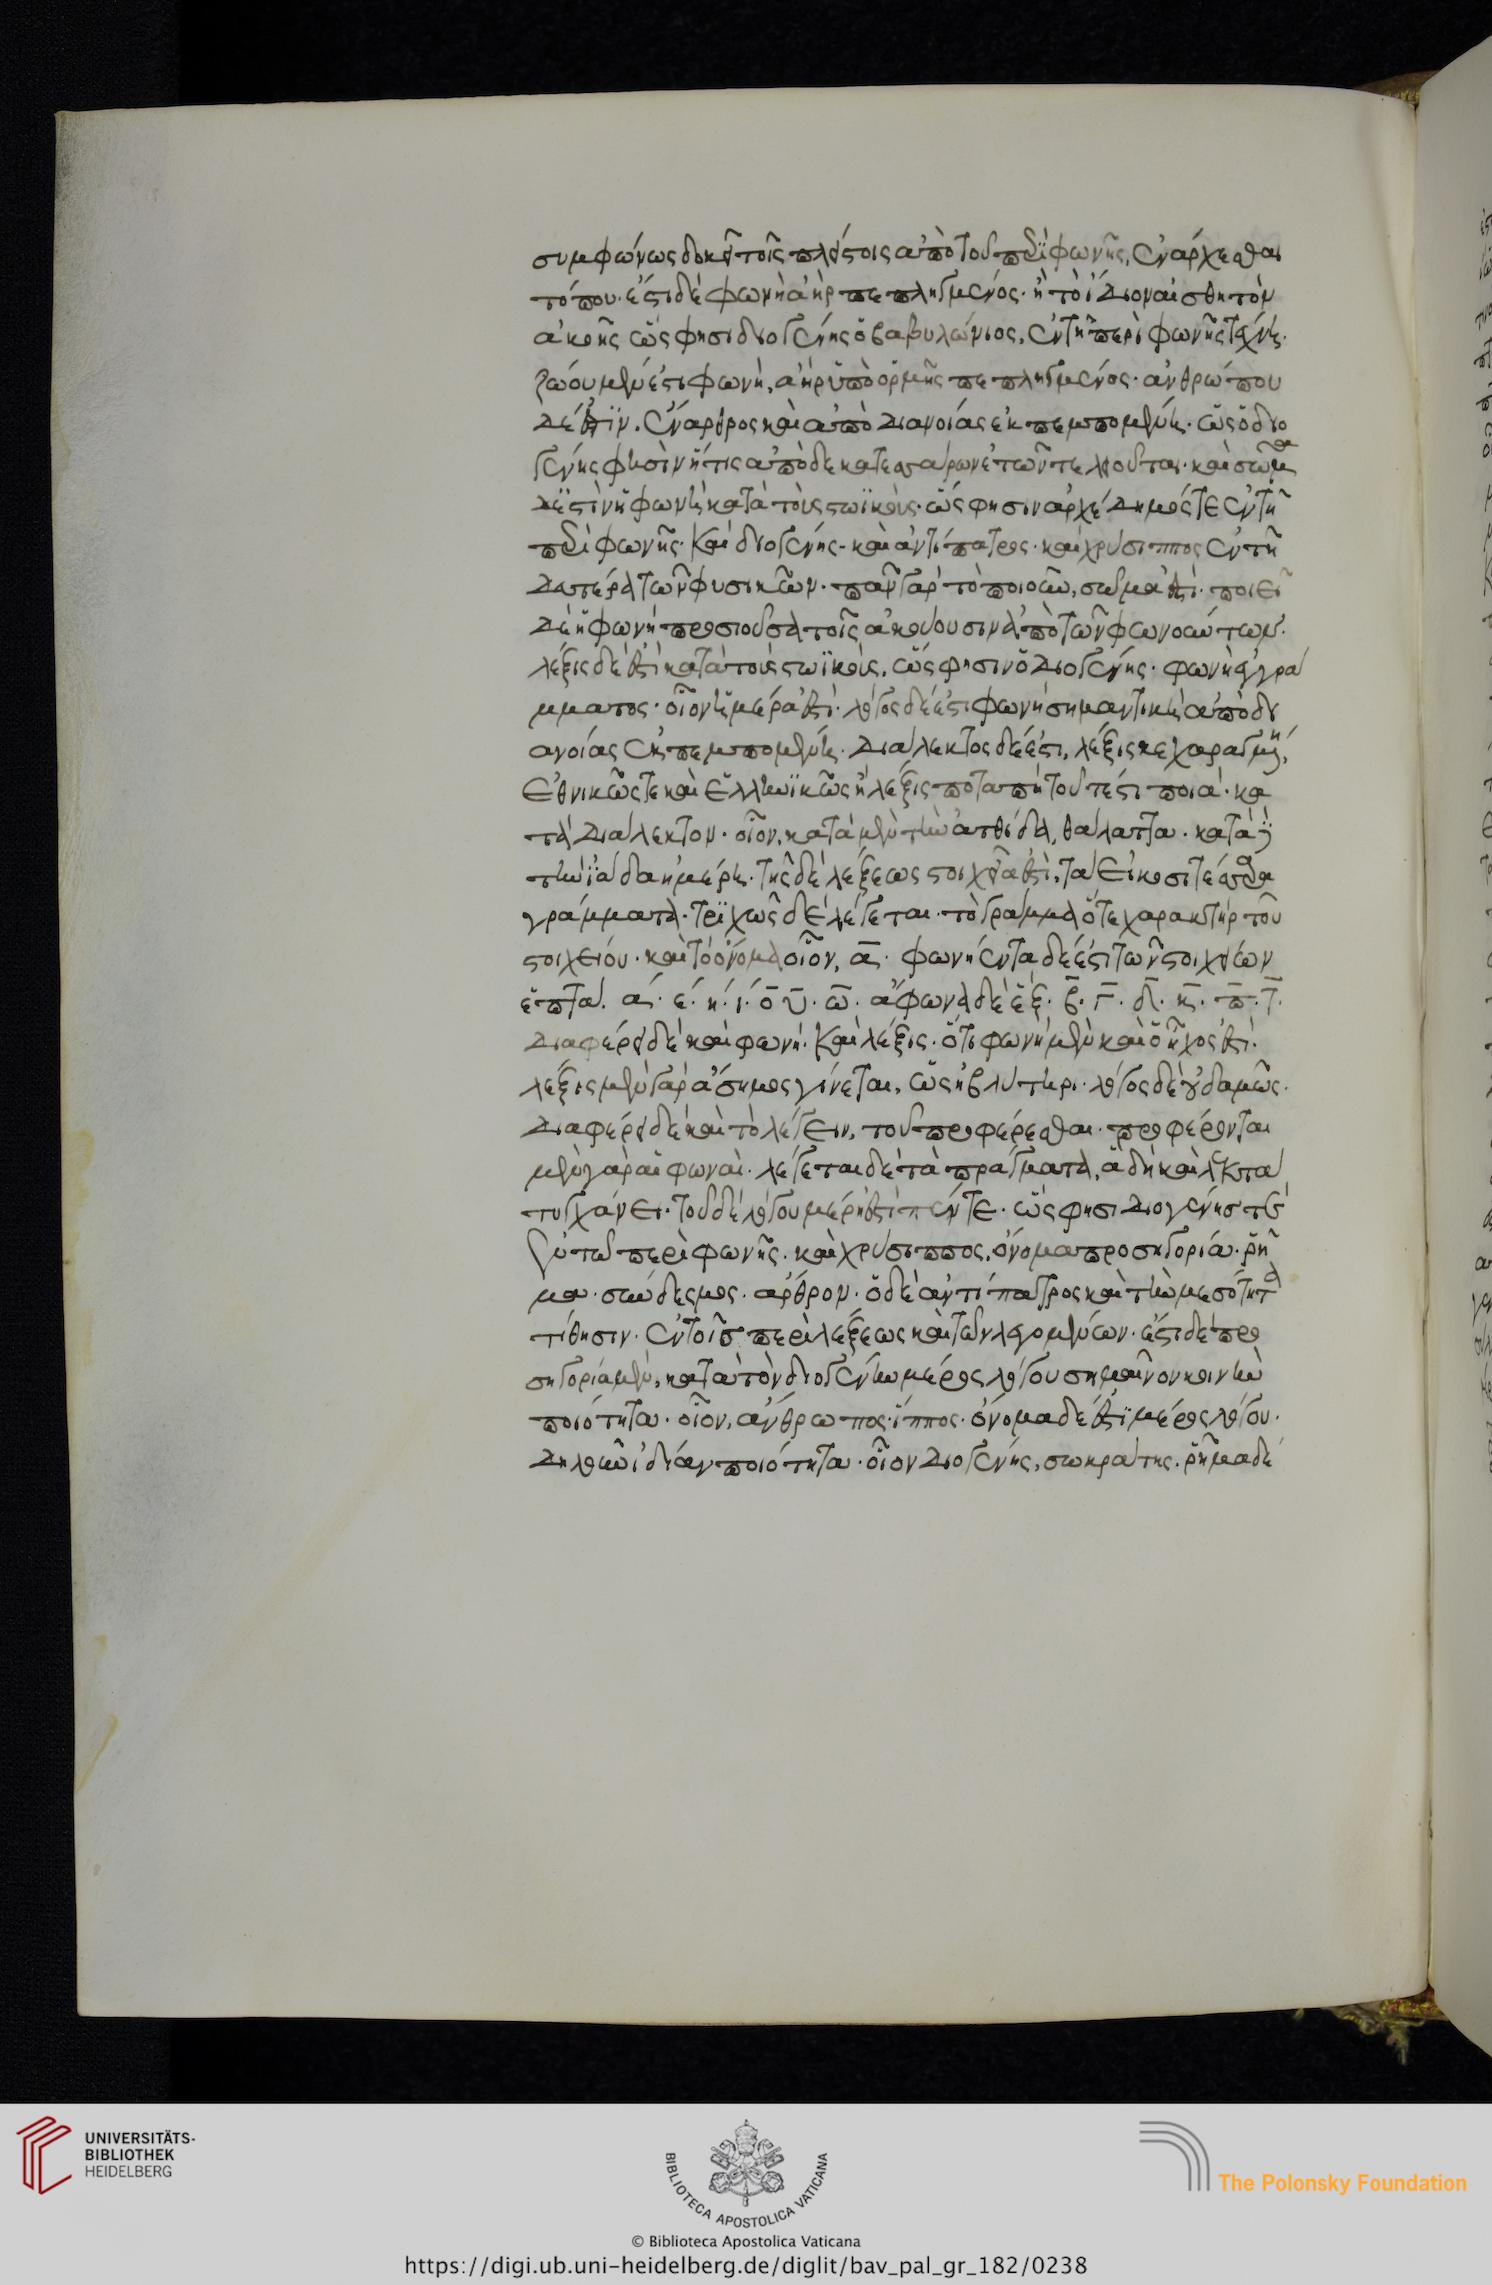 συμφώνως δοκεῖ τοῖς πλείστοις ἀπὸ τοῦ περὶ φωνῆς, ἐνάρχεσθαι
τόπου· ἔστι δὲ φωνὴ ἀὴρ πεπληγμένος· ἢ τὸ ἴδιον αἰσθητὸν
ἀκοῆς ὥς φησι διογένης ὁ βαβυλώνιος, ἐν τῆ περὶ φωνῆς τέχνη·
ζώου μὲν ἐστι φωνὴ, ἀὴρ ὑπὸ ὁρμῆς πεπληγμένος· ἀνθρώπου
δέ ἐστϊν. ἔναρθρος καὶ ἀπὸ διανοίας ἐκπεμπομένη· ὡς ὁ διο
γένης φησὶν ἥτις ἀπὸ δεκατεσσάρων ἐτῶν τελειοῦται· καὶ σῶμα
δ' ἐστὶν ἡ φωνὴ κατὰ τοὺς στωϊκούς· ὥς φησιν ἀρχέδημός τε ἐν τῆ
περὶ φωνῆς· καὶ διογένης· καὶ ἀντίπατρος· καὶ χρύσιππος ἐν τῆ
δευτέρα τῶν φυσικῶν· πᾶν γὰρ τὸ ποιοῦν, σῶμά ἐστι· ποιεῖ
δὲ ἡ φωνὴ προσιοῦσα τοῖς ἀκούουσιν ἀπὸ τῶν φωνούντων·
λέξις δέ ἐστι κατὰ τοὺς στωϊκούς, ὥς φησιν ὁ διογένης· φωνὴ ἐγγρά
μματος· οἷον ἡμέρα ἐστί· λόγος δέ ἐστι φωνὴ σημαντικὴ ἀπὸ δι
ανοίας ἐκπεμπομένη· διάλεκτος δέ ἐστι, λέξις κεχαραγμένη,
ἐθνικῶς τε καὶ ἑλληνϊκῶς ἢ λέξις ποταπὴ τουτέστι ποιά· κα
τὰ διάλεκτον· οἷον, κατὰ μὲν τὴν ἀτθίδα, θάλαττα· κατὰ δὲ
τὴν ϊάδα ἡμέρη· τῆς δὲ λέξεως στοιχεῖά ἐστὶ, τὰ εἰκοσιτέσσαρα
γράμματα· τρϊχῶς δὲ λέγεται· τὸ γράμμα ὅτε χαρακτὴρ τοῦ
στοιχείου· καὶ τὸ ὄνομα οἷον, α· φωνήεντα δέ ἐστι τῶν στοιχείων
ἑπτά. ά· έ· ή· ί· ο υ· ω· ἄφωνα δὲ ἕξ· β· γ· δ· κ· π· τ·
διαφέρει δὲ καὶ φωνὴ· καὶ λέξις· ὅτι φωνὴ μὲν καὶ ὁ ἦχός ἐστι·
λέξις μὲν γὰρ ἄσημος γίνεται, ὡς ἡ βλύτηρι· λόγος δὲ οὐδαμῶς·
διαφέρει δὲ καὶ τὸ λέγειν, τοῦ προφέρεσθαι· προφέρονται
μὲν γὰρ αἱ φωναὶ· λέγεται δὲ τὰ πράγματα, ἃ δὴ καὶ λεκτὰ
τυγχάνει· τοῦ δὲ λόγου μέρη ἐστὶ πέντε· ὥς φησι διογένησ τε
ἐν τῶ περὶ φωνῆς· καὶ χρύσιππος, ὄνομα προσηγορία· ῥῆ
μα· σύνδεσμος· ἄρθρον· ὁ δὲ ἀντίπατρος καὶ τὴν μεσότητα
τίθησιν· ἐν τοῖσ περὶ λέξεως καὶ τῶν λεγομένων· ἔστι δὲ προ
σηγορία μὲν, κατὰ τὸν διογένην μέρος λόγου σημαῖνον κοινὴν
ποιότητα· οἷον, ἄνθρωπος· ἵππος· ὄνομα δέ ἐστϊ μέρος λόγου·
δηλοῦν ἰδίαν ποιότητα· οἷον διογένης, σωκράτης. ῥῆμα δὲ
UNIVERSITÄTS-
BIBLIOTHEK
HEIDELBERG
BIBLIOTECA APOSTOLICA VATICANA
The Polonsky Foundation
© Biblioteca Apostolica Vaticana
https://digi.ub.uni-heidelberg.de/diglit/bav_pal_gr_182/0238